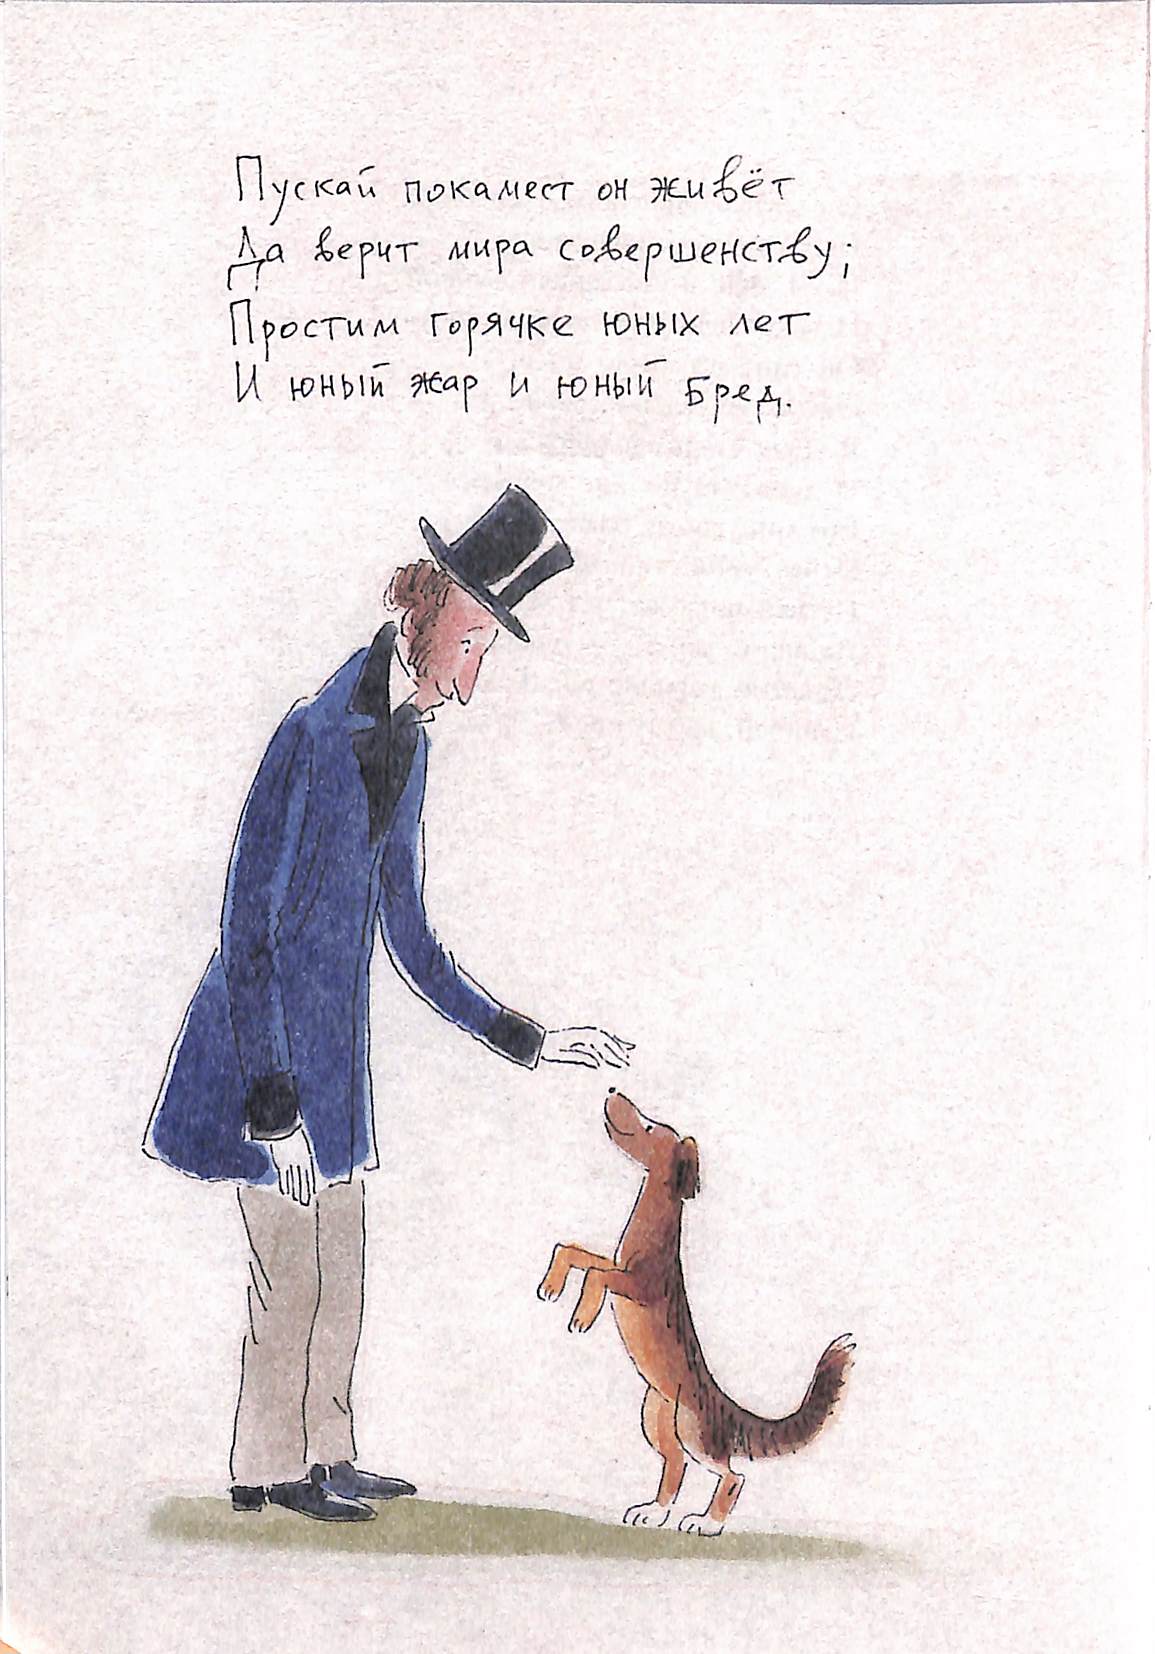 Пускай покамест он живёт
Да верит мира совершенству;
Простим горячке юных лет
И юный жар и юный бред.